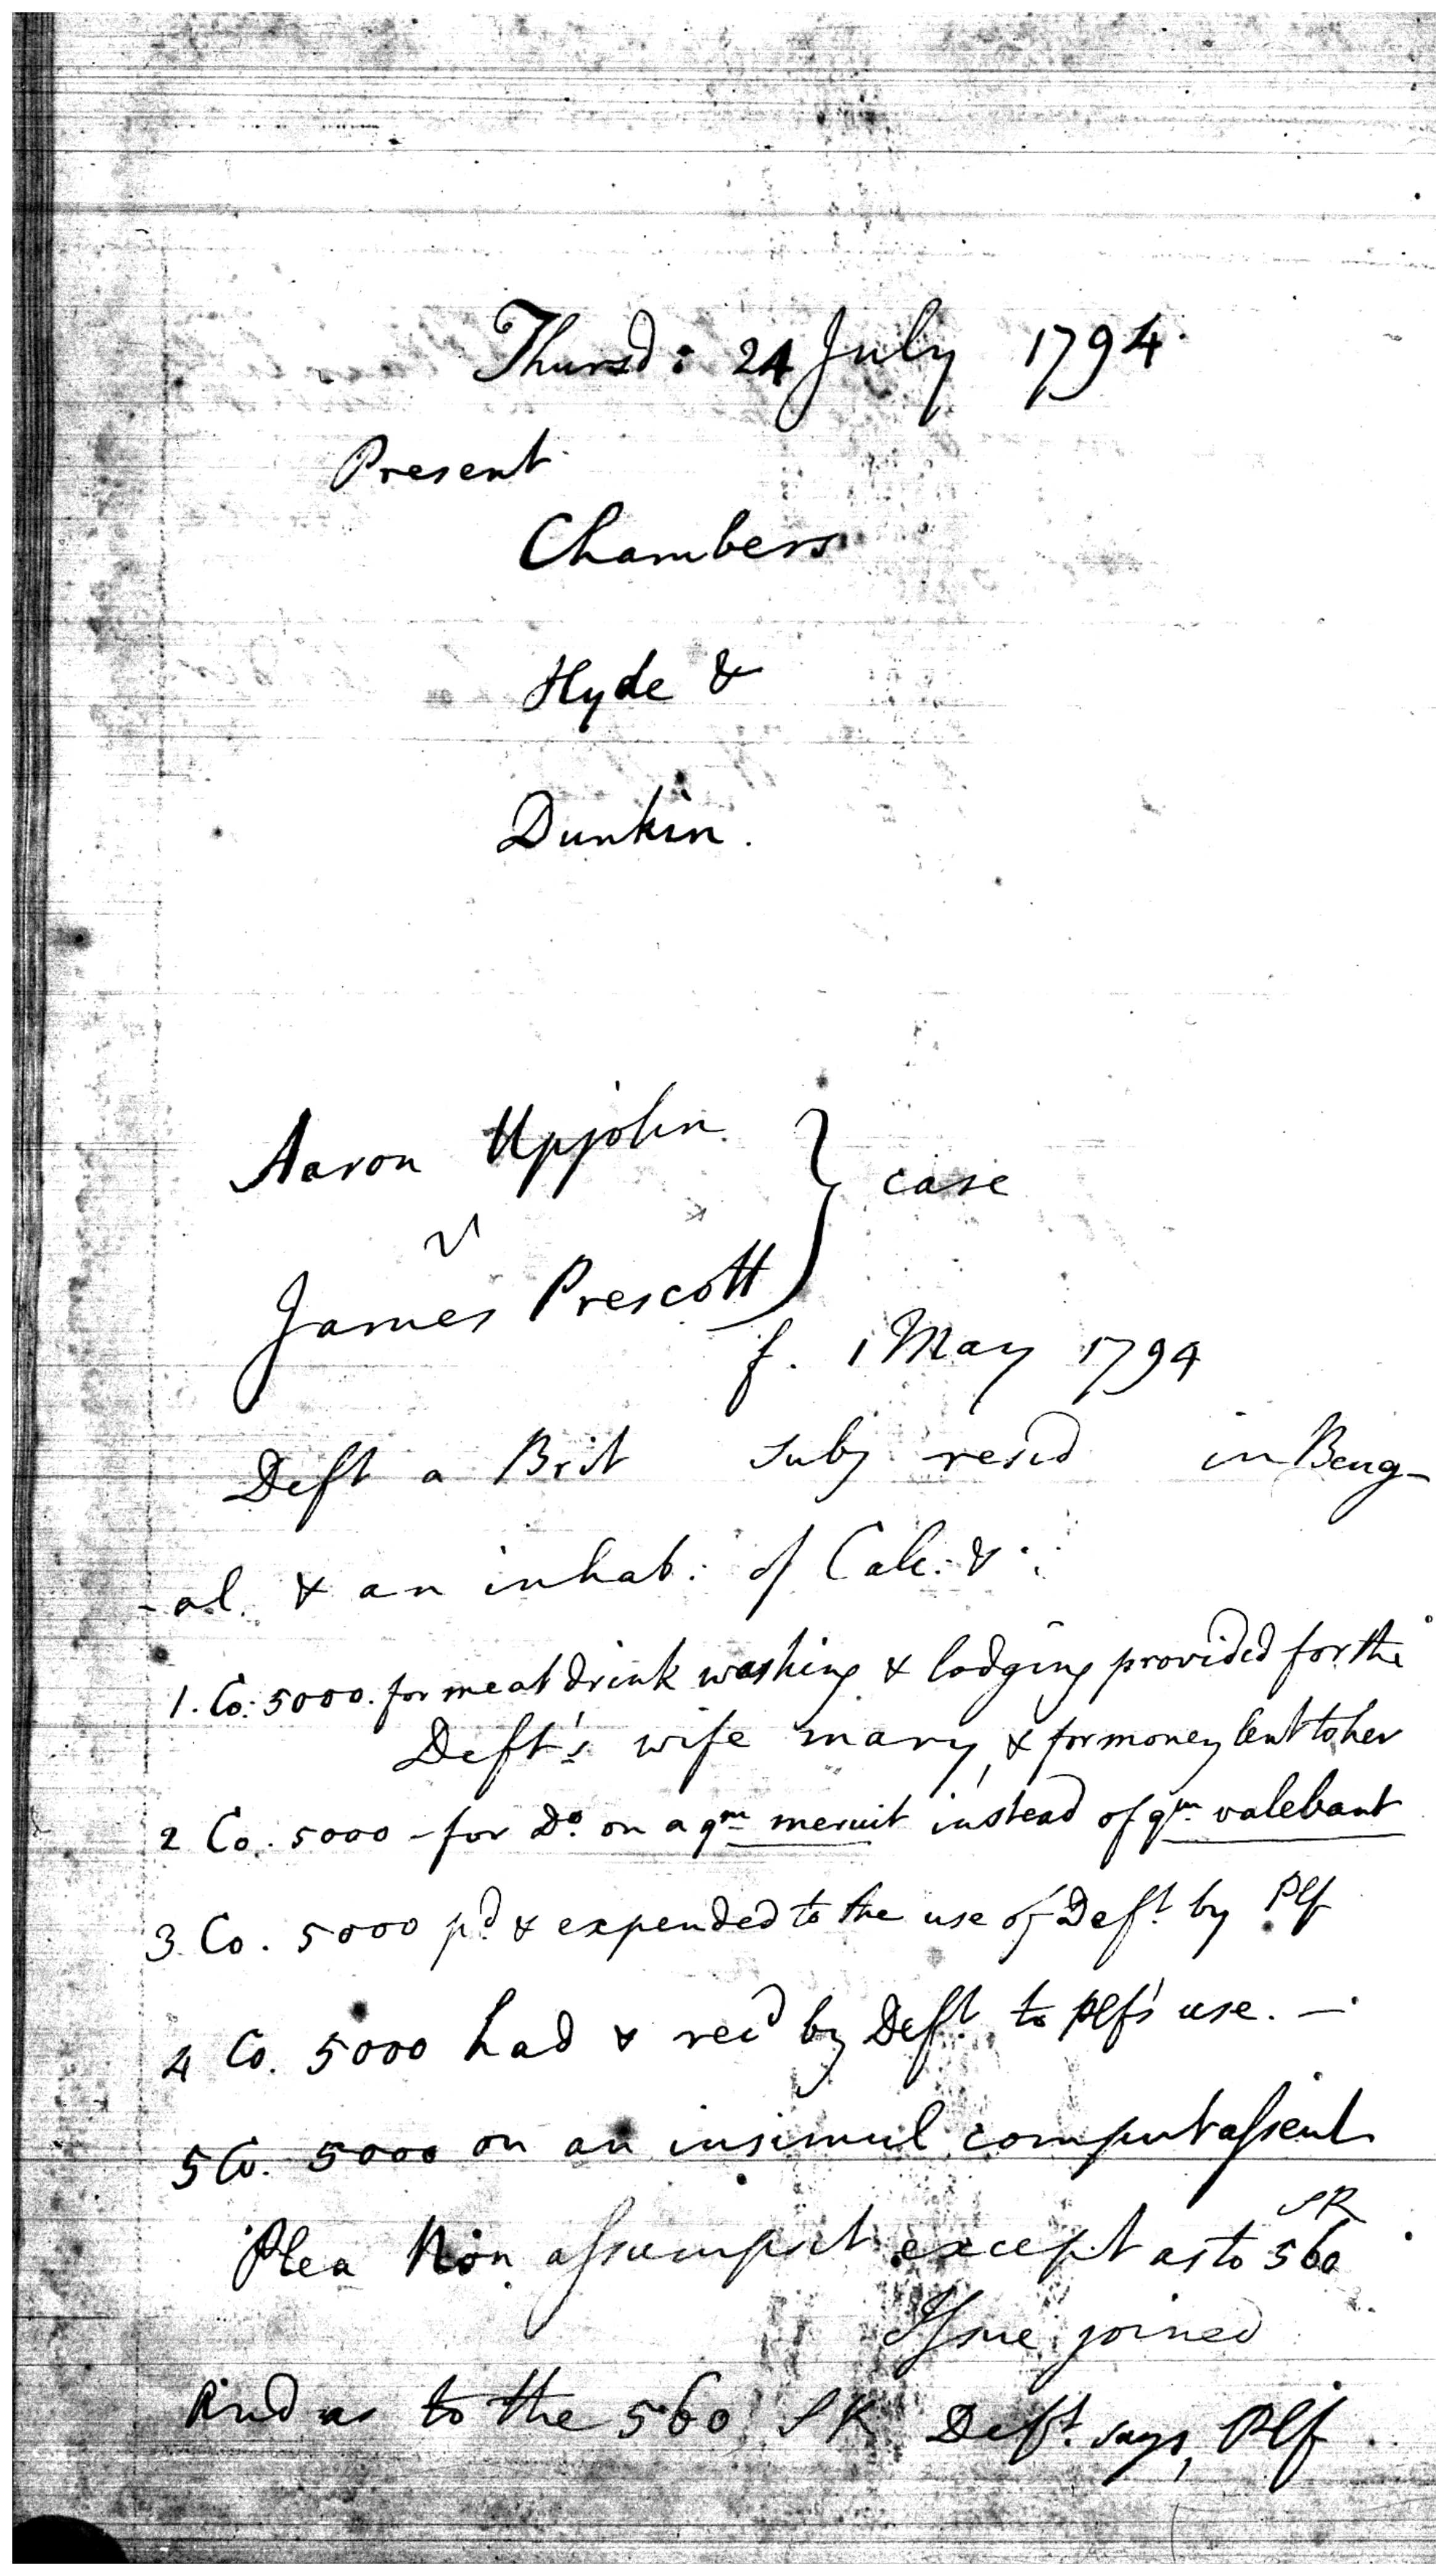 Thursd: 24 July 1794.
Present
Chambers
Hyde &
Dunkin.
Aaron Upjohn
v
James Prescott } case
f. 1 May 1794
Deft a Brit subj resid in Beng-
-al. & an inhab: of Calc: &:
1. Co: 5000. for meat drink washing & lodging provided for the
Deft's wife mary, & for money lent to her
2 Co. 5000 - for Do. on a qm meruit instead of qm valebant
3 Co. 5000 pd. & expended to the use of Deft. by Plf
4 Co. 5000 had & recd by Deft. to plf's use. —
5 Co. 5000 on an insimul computassent
Plea Non assumpsit except as to 560 SR
Issue joined
And as to the 560 SR Deft. says, Plf